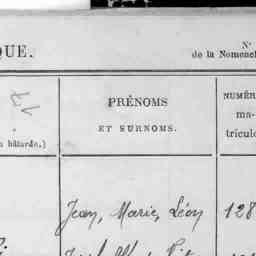 QUE.
N°
de la Nomencl
PRÉNOMS
ET SURNOMS.
NUMÉR
ma-
tricul
n bâtarde.)
Jean, Marie, Léon 128